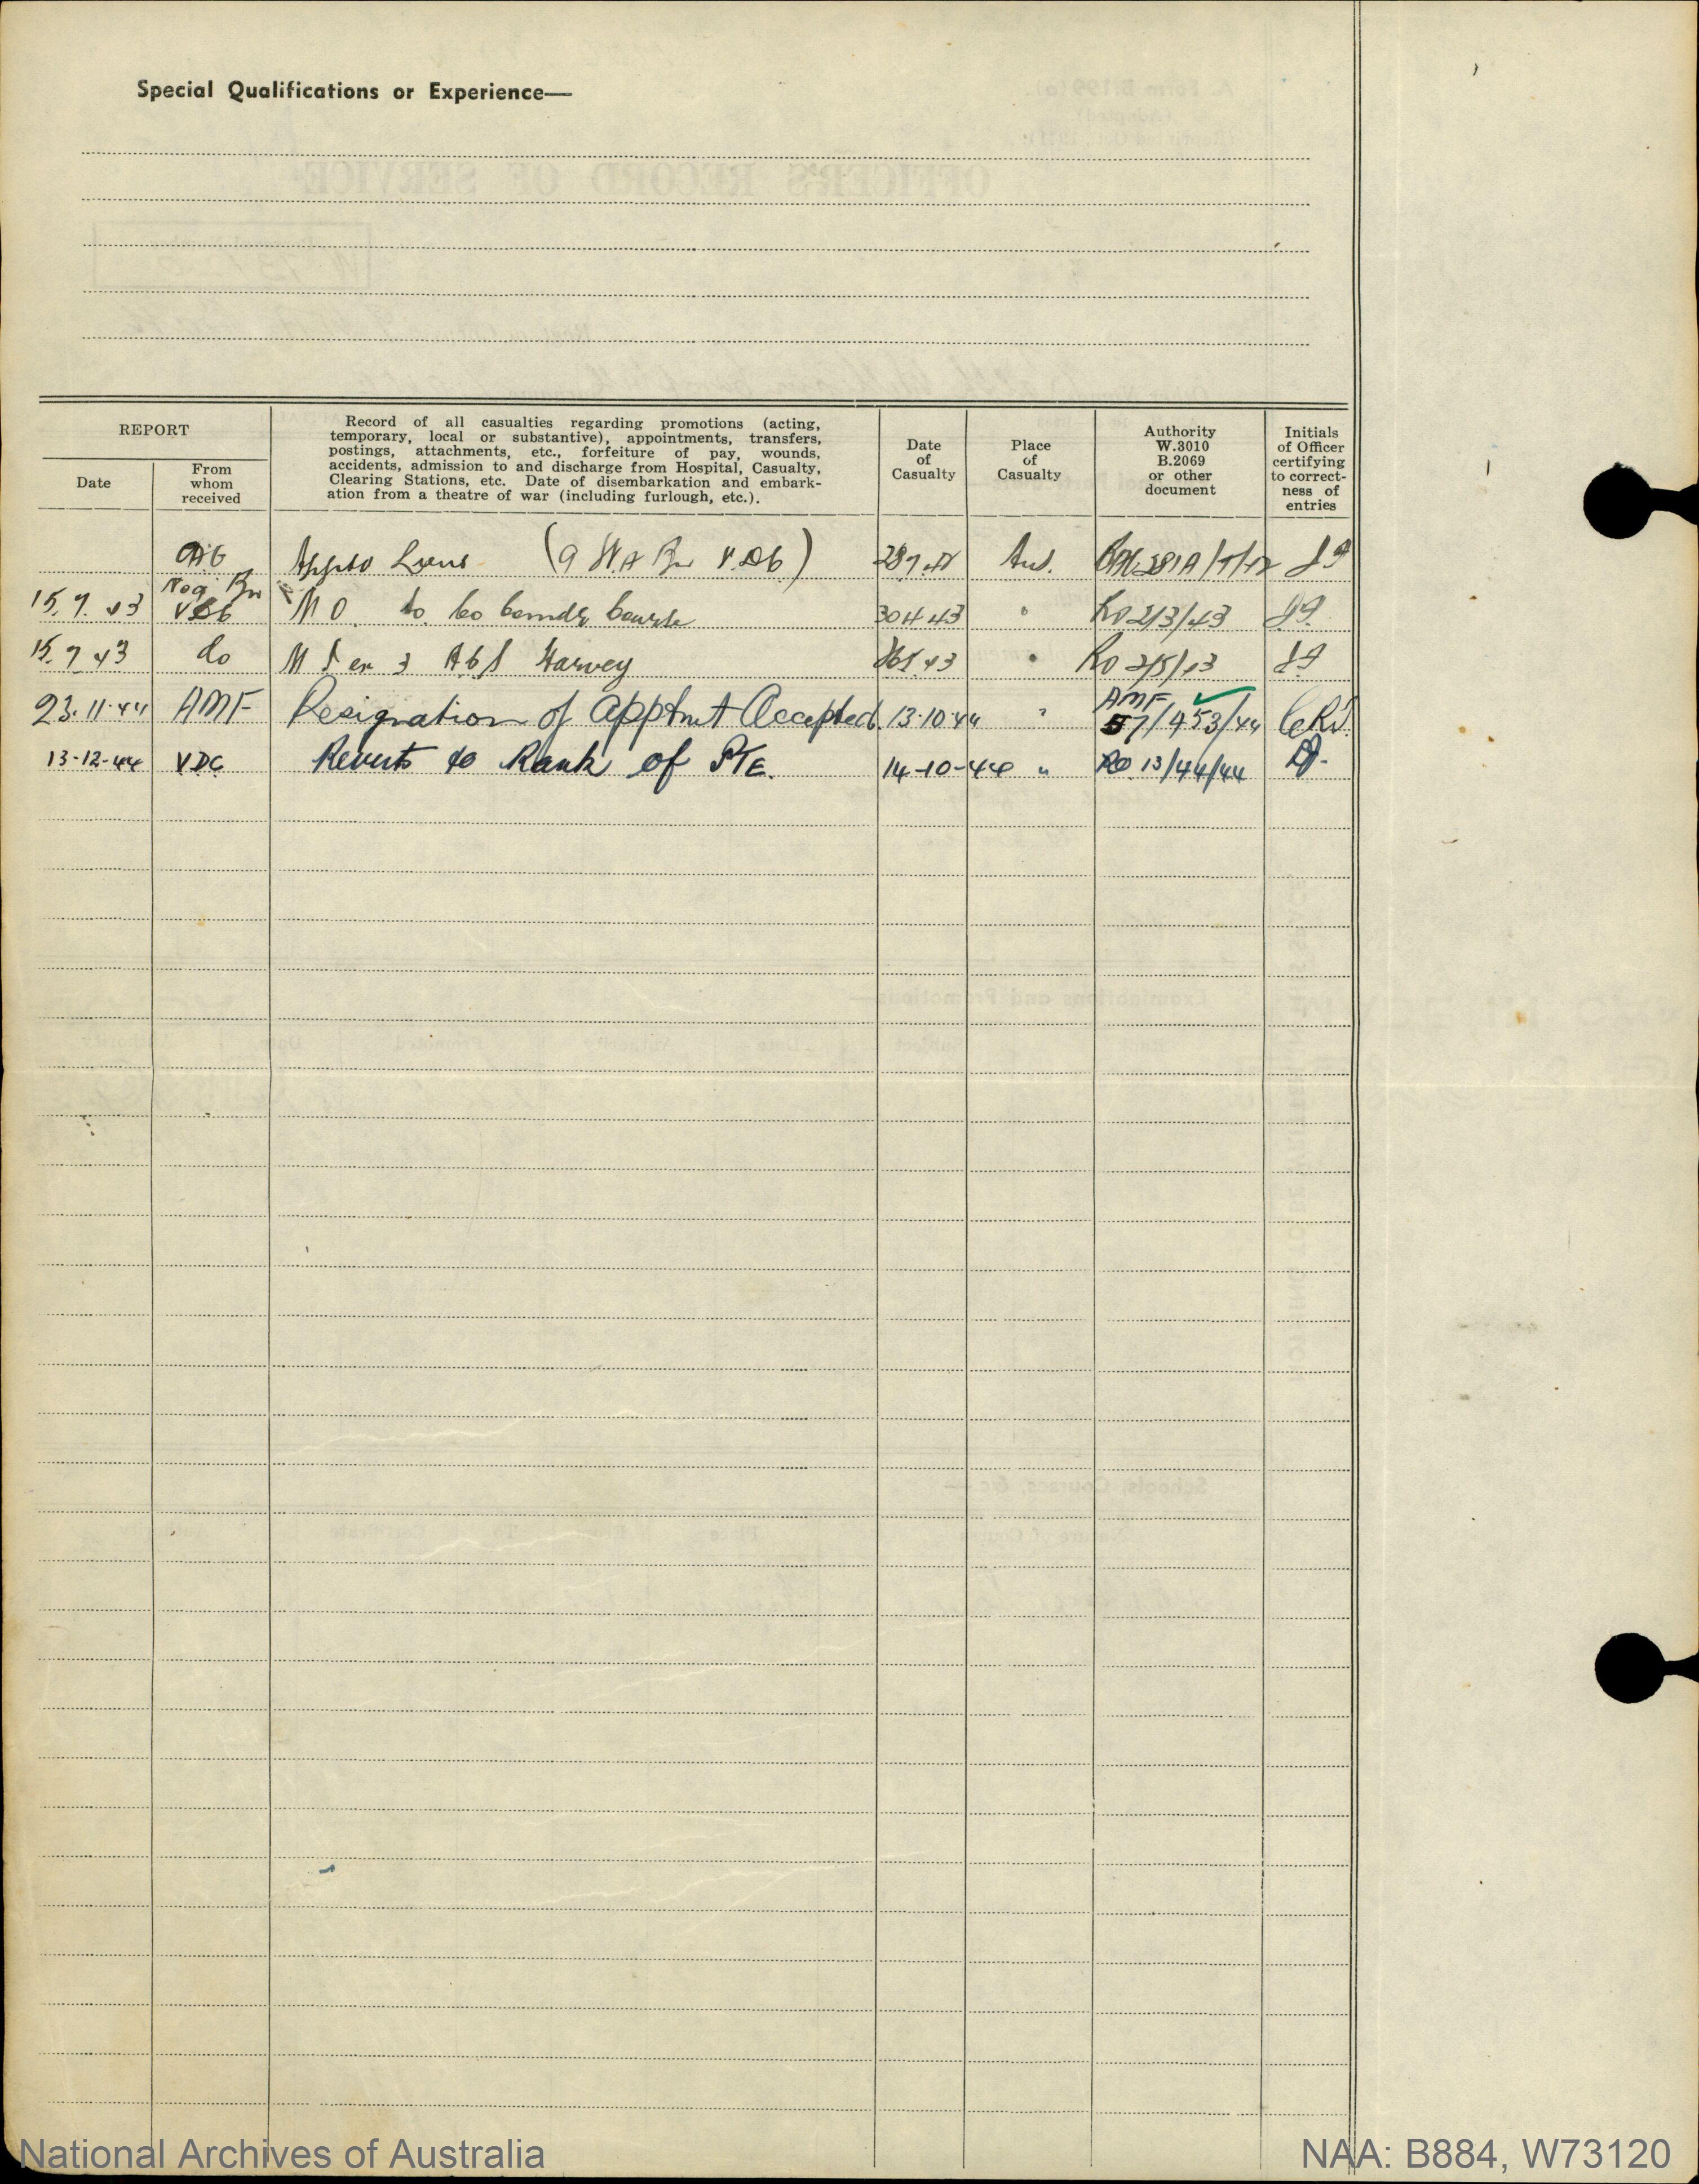 Special Qualifications or Experience—
REPORT
Date
From
whom
received
Record of all casualties regarding promotions (acting,
temporary, local or substantive), appointments, transfers,
postings, attachments, etc., forfeiture of pay, wounds,
accidents, admission to and discharge from Hospital, Casualty,
Clearing Stations, etc. Date of disembarkation and embark-
ation from a theatre of war (including furlough, etc.).
Date
of
Casualty
Place
of
Casualty
Authority
W.3010
B.2069
or other
document
Initials
of Officer
certifying
to correct-
ness of
entries
(9 W.A Bn V.D.C) Aus.
15.7.43 VDC M O. to Co Comdr Course 30 4 43 " RO 2/3/43
15.7.43 do Harvey
23.11.44 AMF Resignation of Apptmt Accepted. 13.10.44 " AMF 57/453/44
13-12-44 VDC Reverts to Rank of PTE. 14-10-44 " RO 13/44/44
National Archives of Australia
NAA: B884, W73120